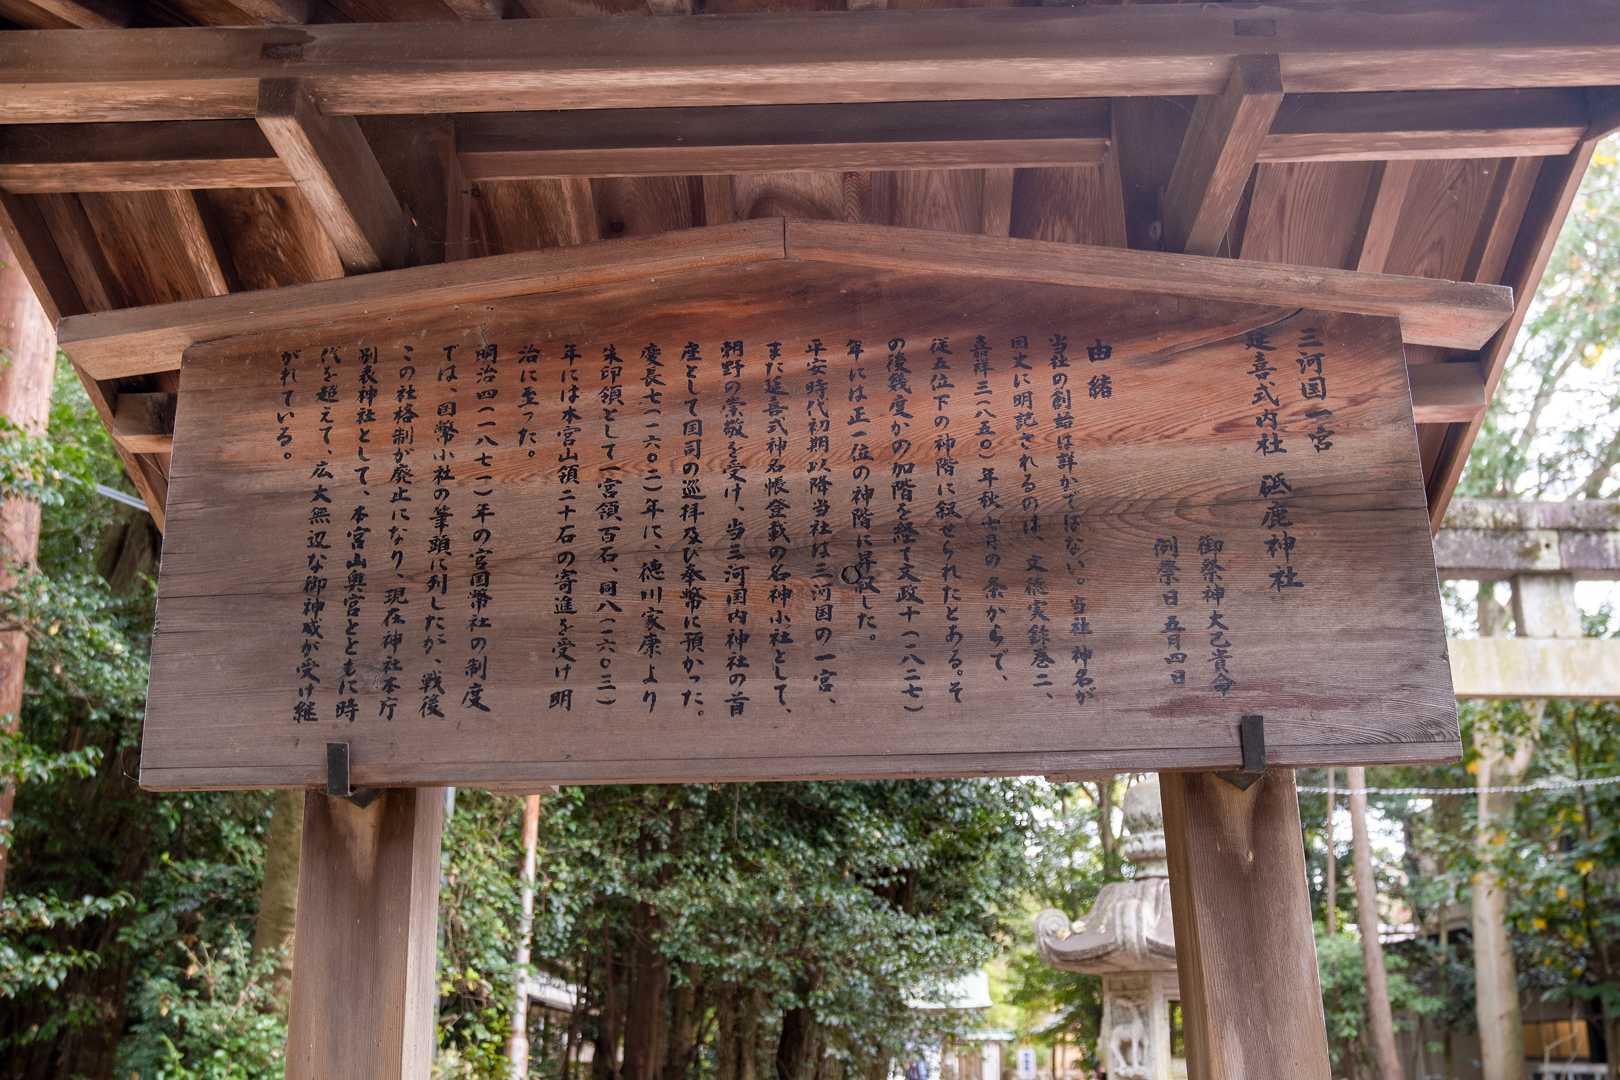 三河国一宮
延喜式内社 砥鹿神社
御祭神大己貴命
例祭日五月四日
由緒
当社の創始は詳かではない。当社神名が
国史に明記されるのは、文徳実録巻二、
嘉祥三(八五〇)年秋七月の条からで、
従五位下の神階に叙せられたとある。そ
の後幾度かの加階を経て文政十(一八二七)
年には正一位の神階に昇叙した。
平安時代初期以降当社は三河国の一宮、
また延喜式神名帳登載の名神小社として、
朝野の崇敬を受け、当三河国内神社の首
座として国司の巡拝及び奉幣に預かった。
慶長七(一六〇二)年に、徳川家康より
朱印領として一宮領百石、同八(一六〇三)
年には本宮山領二十石の寄進を受け明
治に至った。
明治四(一八七一)年の官国幣社の制度
では、国幣小社の筆頭に列したが、戦後
この社格制が廃止になり、現在神社本庁
別表神社として、本宮山奥宮とともに時
代を超えて、広大無辺な御神威が受け継
がれている。